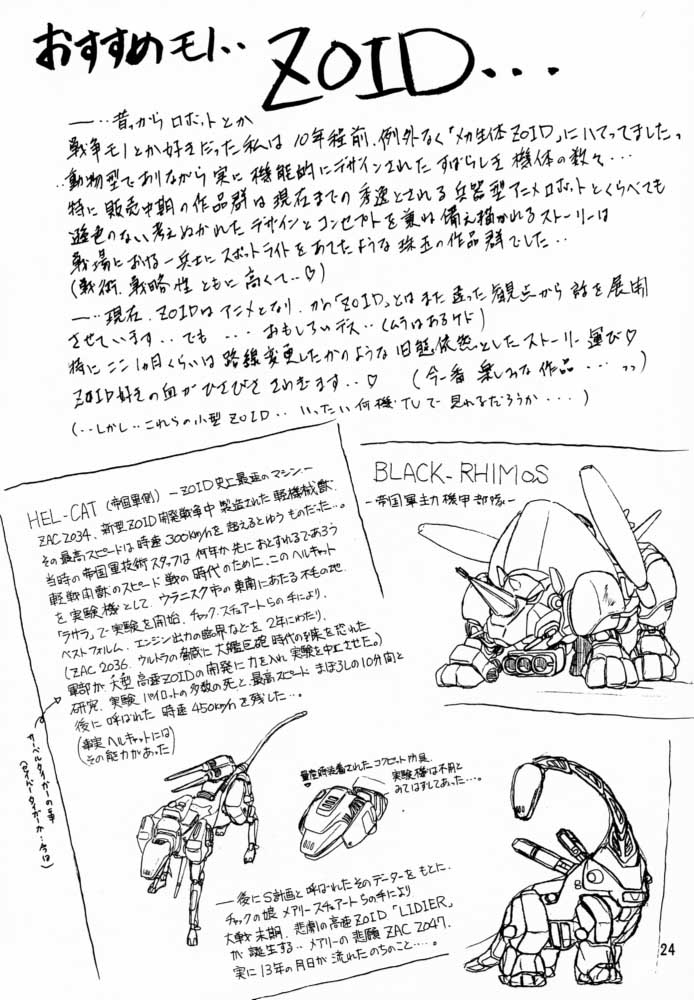 おすすめモノ‥ ZOID...
―‥昔っからロボットとか
戦争モノとか好きだった私は10年程前、例外なく「メカ生体ZOID」にハマってましたっ
‥動物型でありながら実に機能的にデザインされたすばらしき機体の数々…
特に販売中期の作品群は現在までの秀逸とされる兵器型アニメロボットとくらべても
遜色のない考えぬかれたデザインとコンセプトを兼ね備え描かれるストーリーは
戦場における一兵士にスポットライトをあてたような珠玉の作品群でした‥
(戦術、戦略性ともに高くて‥♡)
―‥現在、ZOIDはアニメとなり、かの「ZOID」とはまた違った観点から話を展開
させています‥でも…おもしろいデス‥(ムラはあるケド)
特にここ1ヵ月くらいは路線変更したかのような旧態依然としたストーリー運び♡
ZOID好きの血がひさびささわぎます‥♡ (今一番楽しみな作品…っっ)
(‥しかし‥これらの小型ZOID‥いったい何機TVで見れるだろうか…)
HEL-CAT (帝国軍側) ―ZOID史上最速のマシン―
ZAC2034、新型ZOID開発戦争中製造された軽機械獣、
その最高スピードは時速300km/hを超えるとゆうものだった…。
当時の帝国軍技術スタッフは何年か先におとずれるであろう
軽戦闘獣のスピード戦の時代のために、このヘルキャット
を実験機として、ウラニスク市の東南にあたる不毛の地、
「ラサラ」で実験を開始、チャック・スチュアートらの手により、
ベストフォルム、エンジン出力の臨界などを2年にわたり、
(ZAC2036、ウルトラの脅威に大艦巨砲時代の到来を恐れた
軍部が、大型高速ZOIDの開発に力を入れ実験を中止させた。)
研究、実験パイロットの多数の死と、最高スピードまぼろしの10分間と
後に呼ばれた時速450km/hを残した…。
(事実ヘルキャットには
その能力があった)
サーベルタイガーの事
(セイバータイガーか…今は)
BLACK-RHIMOS
―帝国軍主力機甲部隊―
量産時装着されたコクピット防具、
実験機は不用と
みてはずしてあった…。
―後にS計画と呼ばれたそのデーターをもとに、
チャックの娘メアリースチュアートらの手により
大戦末期、悲劇の高速ZOID「LIDIER」
が誕生する‥メアリーの悲願ZAC2047、
実に13年の月日が流れたのちのこと…。
24